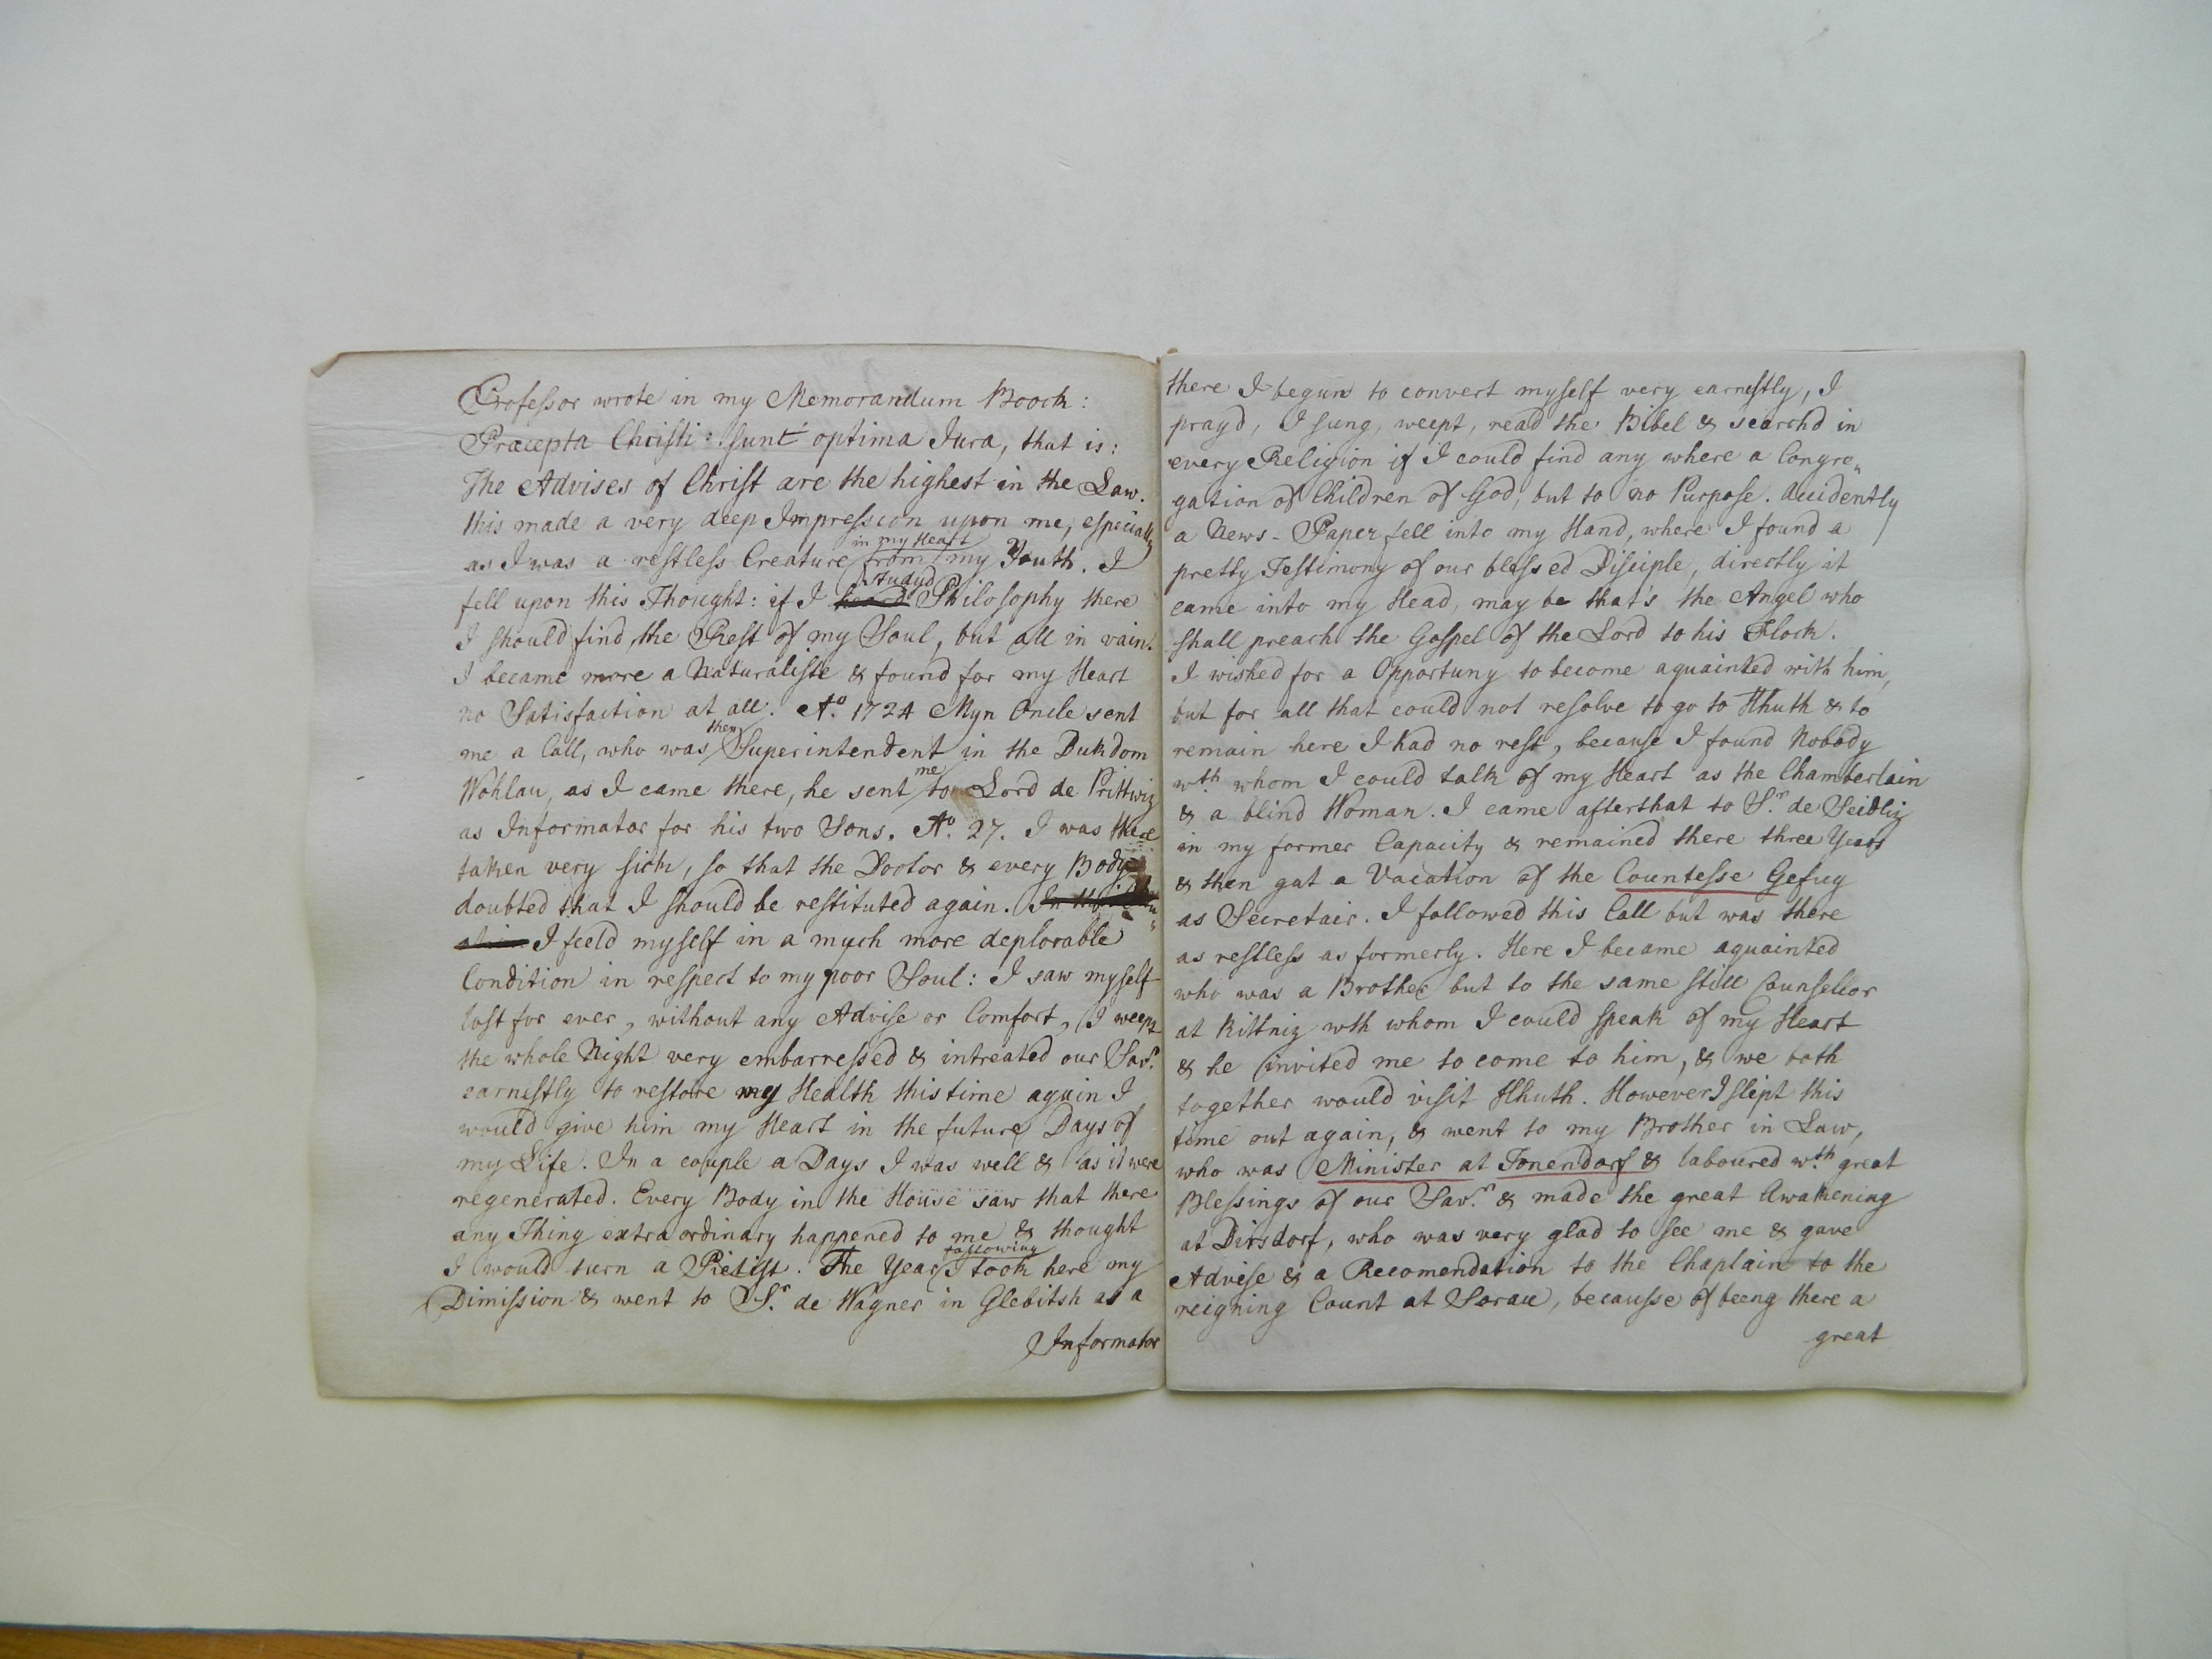 Professor wrote in my Memorandum Boock:
Præcepta Christi: sunt optima Jura, that is:
The Advises of Christ are the highest in the Law.
this made a very deep Impression upon me, especially
in my Heart
as I was a restless Creature from my Youth. I
studyd
fell upon this Thought: if I Philosophy there
I should find the Rest of my Soul, but all in vain.
I became more a Naturaliste & found for my Heart
no Satisfaction at all. Ao. 1724 Myn Oncle sent
then
me a Call, who was Superintendent in the Dukdom
me
Wohlau, as I came there, he sent to Lord de Prittwiz
as Informator for his two Sons. Ao. 27. I was there
taken very sick, so that the Doctor & every Body
doubted that I should be restituted again.
I feeld myself in a much more deplorable
Condition in respect to my poor Soul: I saw myself
lost for ever, without any Advise or Comfort, I weept
the whole Night very embarressed & intreated our Savr.
earnestly to restore my Health this time again I
would give him my Heart in the future Days of
my Life. In a couple a Days I was well & as it were
regenerated. Every Body in the House saw that there
any Thing extraordinary happened to me & thought
following
I would turn a Pietist. The Year I took here my
Dimission & went to Sr. de Wagner in Glebitsh as a
Informator
there I begun to convert myself very earnestly, I
prayd, I sung, weept, read the Bibel & searchd in
every Religion if I could find any where a Congre„
gation of Children of God, but to no Purpose. Accidently
a News-Paper fell into my Hand, where I found a
pretty Testimony of our blessed Disciple, directly it
came into my Head, may be that's the Angel who
shall preach the Gospel of the Lord to his Flock.
I wished for a Opportuny to become aquainted with him,
but for all that could not resolve to go to Hhuth & to
remain here I had no rest, because I found Nobody
wth. whom I could talk of my Heart as the Chamberlain
& a blind Woman. I came afterthat to Sr. de Seidliz
in my former Capacity & remained there three Years
& then gat a Vacation of the Countesse Gefug
as Secretair. I followed this Call but was there
as restless as formerly. Here I became aquainted
who was a Brother but to the same still Counsellor
at Kittniz wth whom I could speak of my Heart
& he invited me to come to him, & we both
together would visit Hhuth. However I slipt this
time out again, & went to my Brother in Law,
who was Minister at Tonendorf & laboured wth. great
Blessings of our Savr. & made the great Awakening
at Dirsdorf, who was very glad to see me & gave
Advise & a Recomendation to the Chaplain to the
reigning Count at Sorau, becausse of beeng there a
great